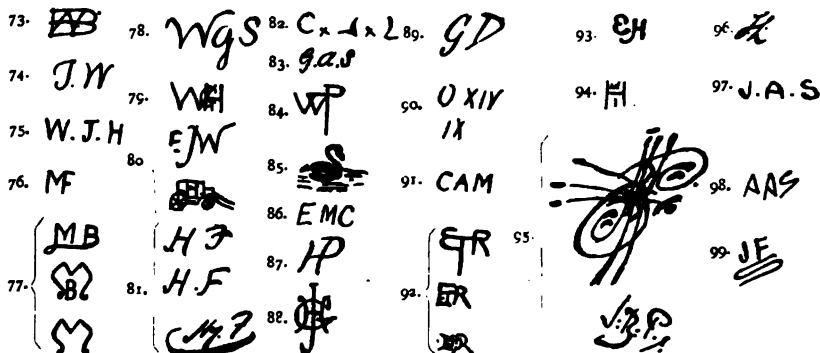 73. WB
74. J.W
75. W.J.H
76. MF
77. MB
B
78. WgS
79. WH
80 E.JW
81. H F
H.F
Hy.F
82. C x J x L
83. g.a.s
84. WP
85.
86. EMC
87. HP
88.
89. GD
90. O XIV
IX
91. CAM
92. ETR
ETR
93. EH
94. H
95.
J.R.P.
96.
97. J.A.S
98. AAS
99. JF